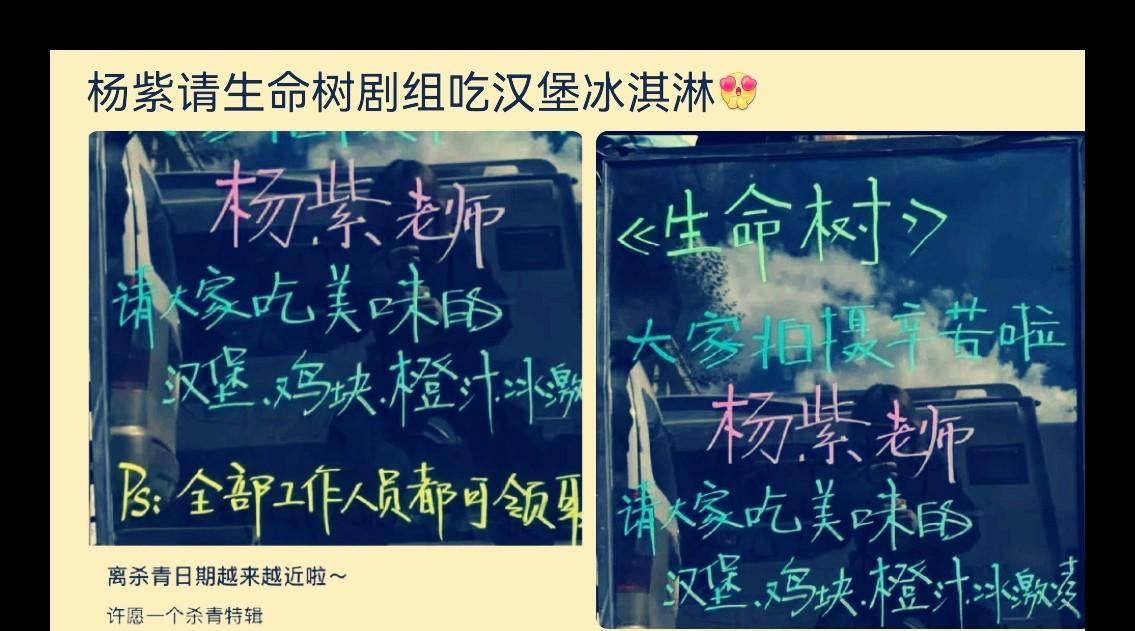 杨紫请生命树剧组吃汉堡冰淇淋😍
杨紫老师
请大家吃美味的
汉堡.鸡块.橙汁.冰激
Ps:全部工作人员都可领取
离杀青日期越来越近啦～
许愿一个杀青特辑
《生命树》
大家拍摄辛苦啦
杨紫老师
请大家吃美味的
汉堡.鸡块.橙汁.冰激凌